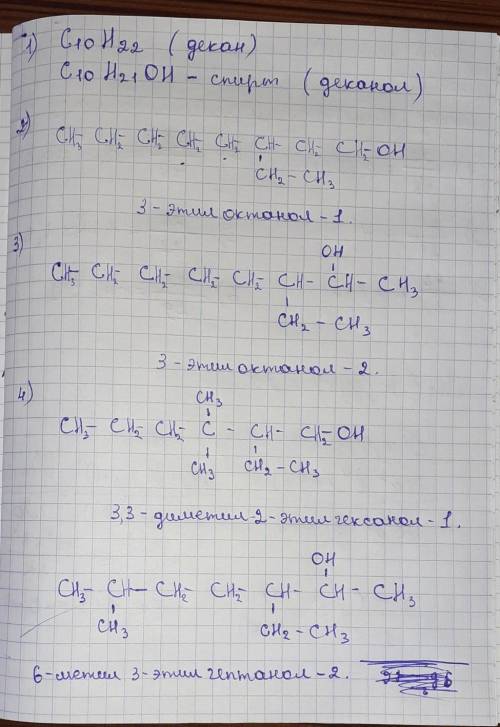 1) C10H22 (декан)
C10H21OH - спирт (деканол)
2) CH3- CH2- CH2- CH2- CH2- CH- CH2- CH2- OH
CH2 - CH3
3 - этил октанол - 1.
3) OH
CH3- CH2- CH2- CH2- CH2- CH- CH- CH3
CH2 - CH3
3 - этил октанол - 2.
4) CH3
CH3- CH2- CH2- C - CH- CH2- OH
CH3 CH2 - CH3
3,3 - диметил-2-этил гексанол - 1.
OH
CH3- CH- CH2- CH2- CH- CH - CH3
CH3 CH2 - CH3
6-метил 3-этил гептанол-2.